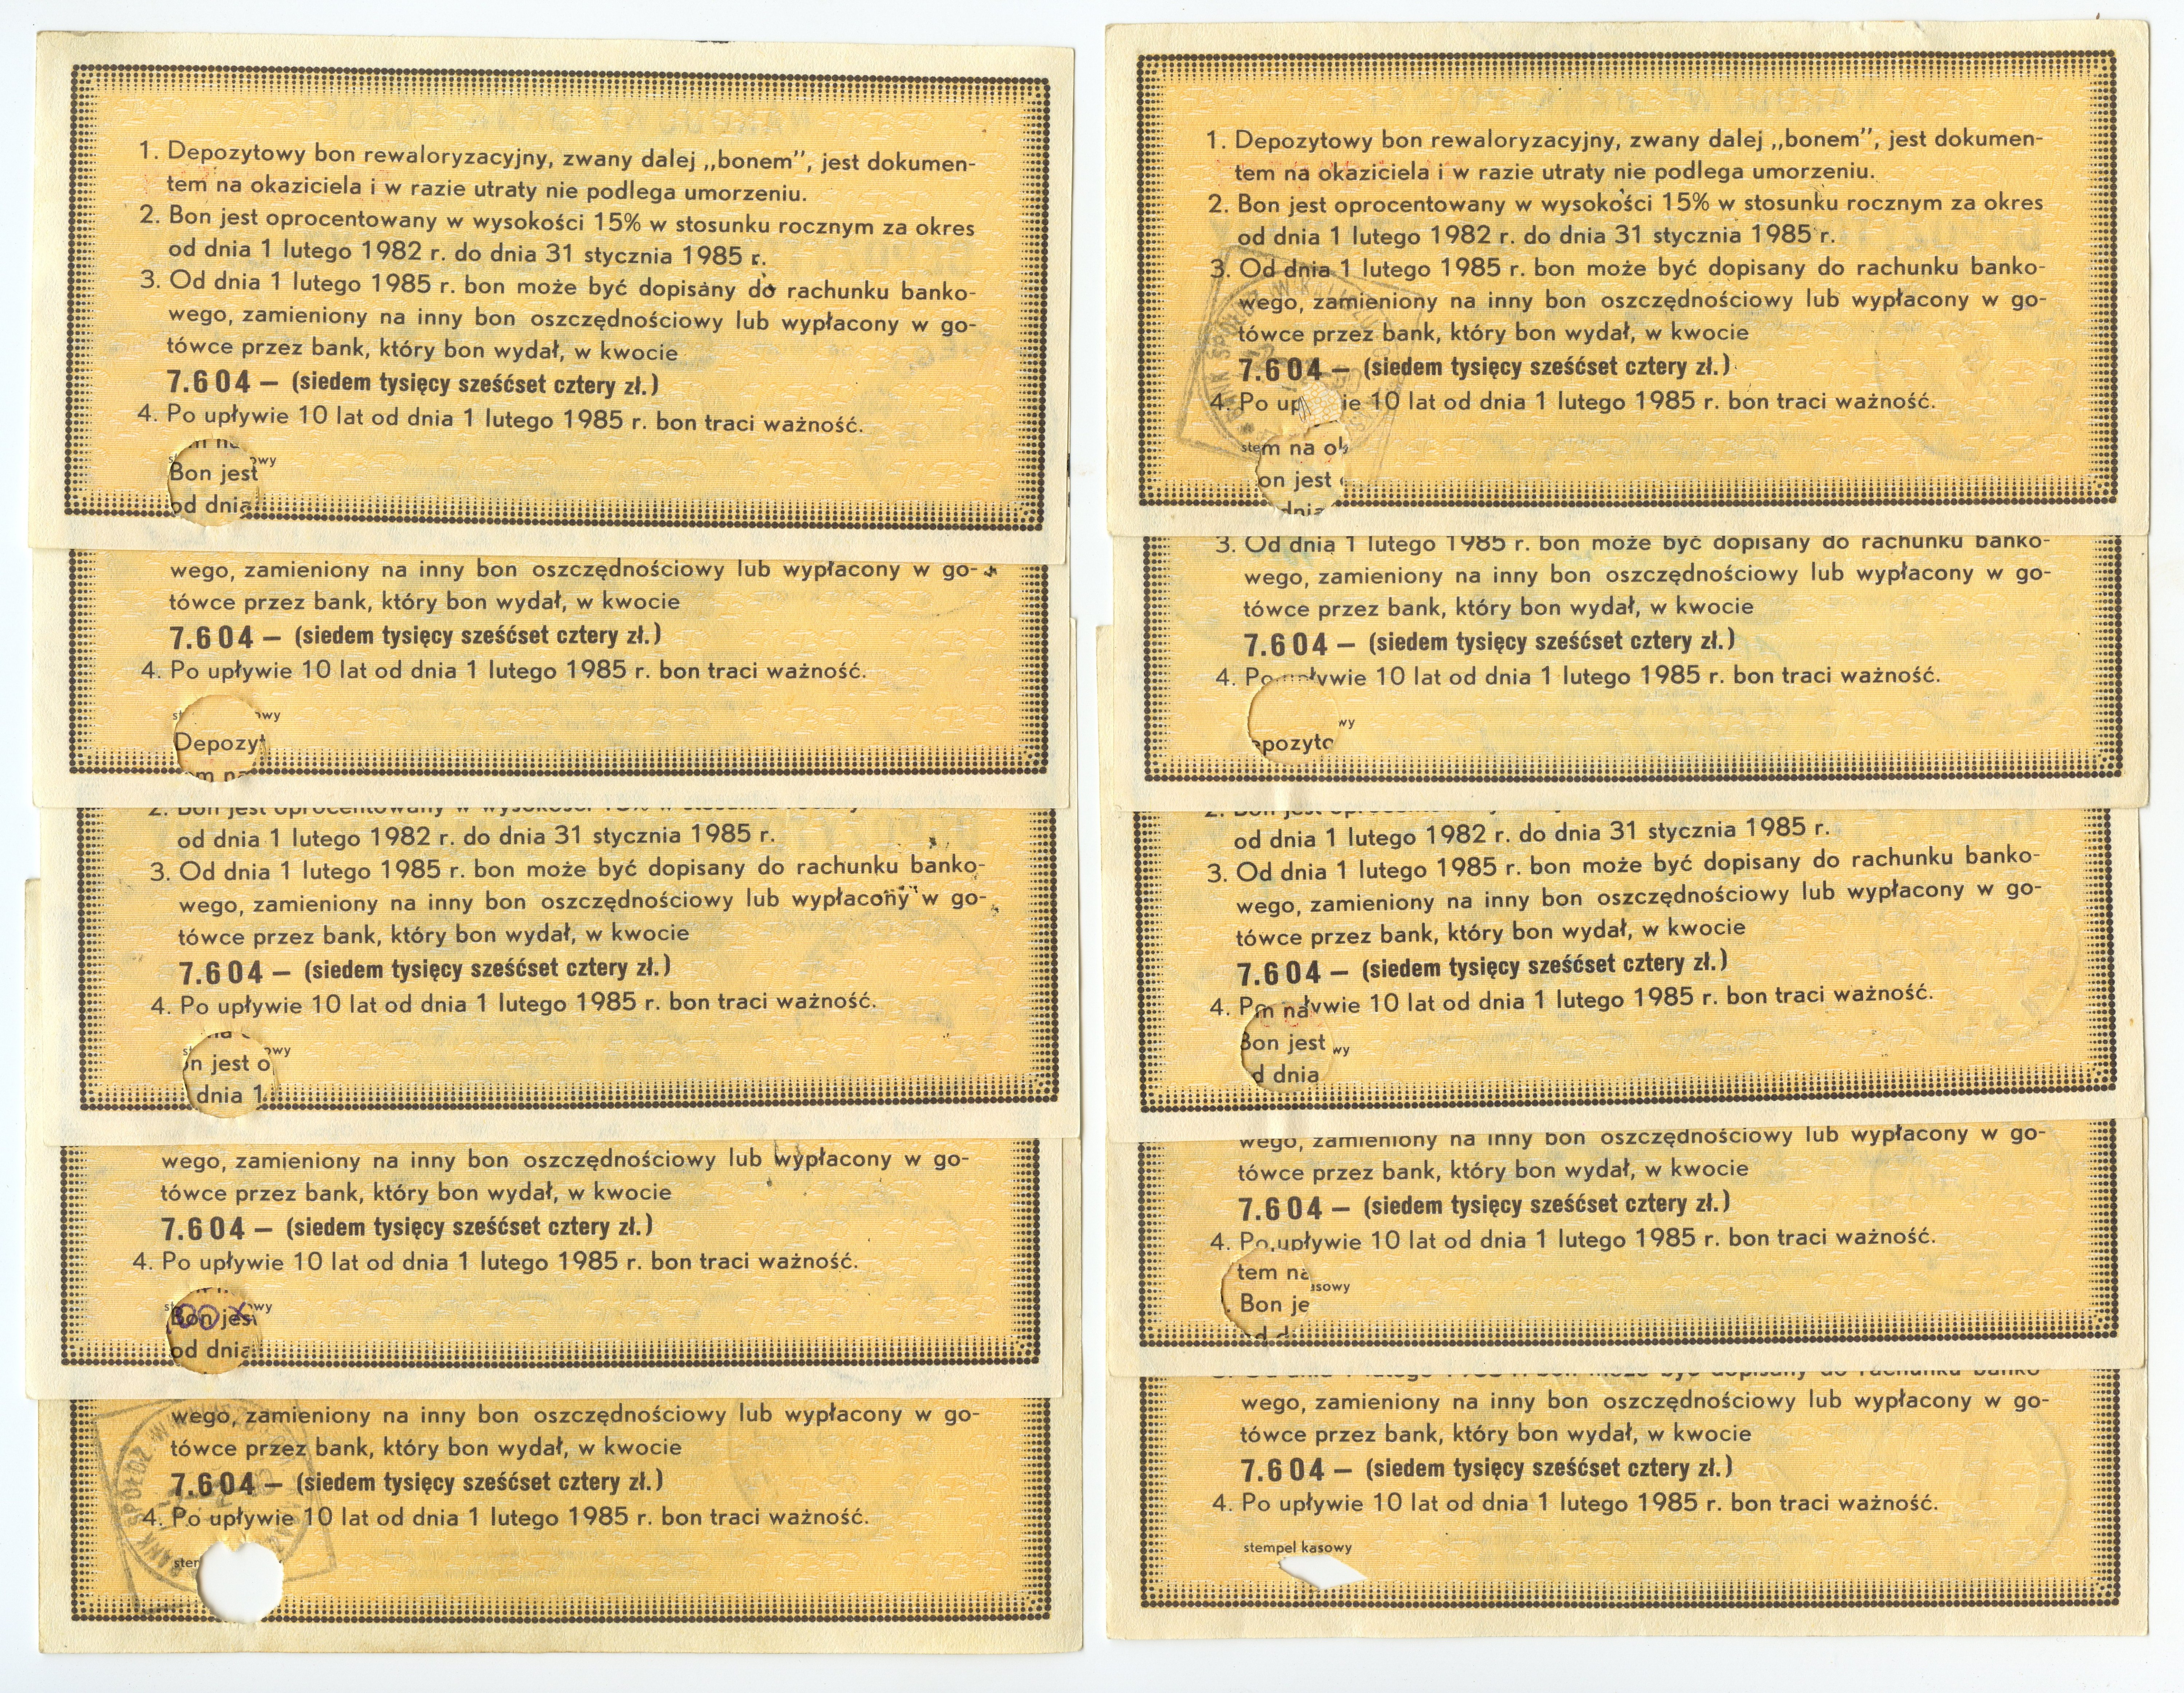 1. Depozytowy bon rewaloryzacyjny, zwany dalej „bonem”, jest dokumen-
tem na okaziciela i w razie utraty nie podlega umorzeniu.
2. Bon jest oprocentowany w wysokości 15% w stosunku rocznym za okres
od dnia 1 lutego 1982 r. do dnia 31 stycznia 1985 r.
3. Od dnia 1 lutego 1985 r. bon może być dopisany do rachunku banko-
wego, zamieniony na inny bon oszczędnościowy lub wypłacony w go-
tówce przez bank, który bon wydał, w kwocie
7.604 — (siedem tysięcy sześćset cztery zł.)
4. Po upływie 10 lat od dnia 1 lutego 1985 r. bon traci ważność.
Bon jest
od dnia
wego, zamieniony na inny bon oszczędnościowy lub wypłacony w go-
tówce przez bank, który bon wydał, w kwocie
7.604 — (siedem tysięcy sześćset cztery zł.)
4. Po upływie 10 lat od dnia 1 lutego 1985 r. bon traci ważność.
owy
Depozyt
2. Bon jest oprocentowany w wysokości 15% w stosunku
od dnia 1 lutego 1982 r. do dnia 31 stycznia 1985 r.
3. Od dnia 1 lutego 1985 r. bon może być dopisany do rachunku banko-
wego, zamieniony na inny bon oszczędnościowy lub wypłacony w go-
tówce przez bank, który bon wydał, w kwocie
7.604 — (siedem tysięcy sześćset cztery zł.)
4. Po upływie 10 lat od dnia 1 lutego 1985 r. bon traci ważność.
owy
n jest o
dnia 1
wego, zamieniony na inny bon oszczędnościowy lub wypłacony w go-
tówce przez bank, który bon wydał, w kwocie
7.604 — (siedem tysięcy sześćset cztery zł.)
4. Po upływie 10 lat od dnia 1 lutego 1985 r. bon traci ważność.
Bon jest
od dnia
wego, zamieniony na inny bon oszczędnościowy lub wypłacony w go-
tówce przez bank, który bon wydał, w kwocie
7.604 — (siedem tysięcy sześćset cztery zł.)
4. Po upływie 10 lat od dnia 1 lutego 1985 r. bon traci ważność.
BANK SPÓŁDZ. W
1. Depozytowy bon rewaloryzacyjny, zwany dalej „bonem”, jest dokumen-
tem na okaziciela i w razie utraty nie podlega umorzeniu.
2. Bon jest oprocentowany w wysokości 15% w stosunku rocznym za okres
od dnia 1 lutego 1982 r. do dnia 31 stycznia 1985 r.
3. Od dnia 1 lutego 1985 r. bon może być dopisany do rachunku banko-
wego, zamieniony na inny bon oszczędnościowy lub wypłacony w go-
tówce przez bank, który bon wydał, w kwocie
7.604 — (siedem tysięcy sześćset cztery zł.)
4. Po up ie 10 lat od dnia 1 lutego 1985 r. bon traci ważność.
m na ok
on jest
dnia
3. Od dnia 1 lutego 1985 r. bon może być dopisany do rachunku banko-
wego, zamieniony na inny bon oszczędnościowy lub wypłacony w go-
tówce przez bank, który bon wydał, w kwocie
7.604 — (siedem tysięcy sześćset cztery zł.)
4. Po upływie 10 lat od dnia 1 lutego 1985 r. bon traci ważność.
wy
epozyto
od dnia 1 lutego 1982 r. do dnia 31 stycznia 1985 r.
3. Od dnia 1 lutego 1985 r. bon może być dopisany do rachunku banko-
wego, zamieniony na inny bon oszczędnościowy lub wypłacony w go-
tówce przez bank, który bon wydał, w kwocie
7.604 — (siedem tysięcy sześćset cztery zł.)
4. P m na ywie 10 lat od dnia 1 lutego 1985 r. bon traci ważność.
Bon jest wy
d dnia
wego, zamieniony na inny bon oszczędnościowy lub wypłacony w go-
tówce przez bank, który bon wydał, w kwocie
7.604 — (siedem tysięcy sześćset cztery zł.)
4. Po upływie 10 lat od dnia 1 lutego 1985 r. bon traci ważność.
tem na
asowy
Bon je
3. Od dnia 1 lutego 1985 r. bon może być dopisany do rachunku banko-
wego, zamieniony na inny bon oszczędnościowy lub wypłacony w go-
tówce przez bank, który bon wydał, w kwocie
7.604 — (siedem tysięcy sześćset cztery zł.)
4. Po upływie 10 lat od dnia 1 lutego 1985 r. bon traci ważność.
stempel kasowy